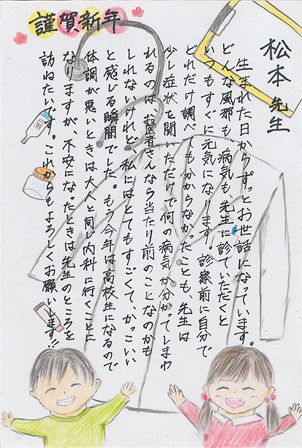 謹賀新年
松本先生
生まれた日からずっとお世話になっています。
どんな風邪も病気も先生に診ていただくと
いつもすぐに元気になります。診察前に自分で
どれだけ調べても分からなかったことも、先生は
少し症状を聞いただけで何の病気か分かってしまわ
れるのは、お医者さんなら当たり前のことなのかも
しれないけれど、私にはとてもすごくて、かっこいい
と感じる瞬間でした。もう今年は高校生になるので
体調が悪いときは大人と同じ内科に行くことに
なりますが、不安になったときは先生のところを
訪ねたいです。これからもよろしくお願いします!!